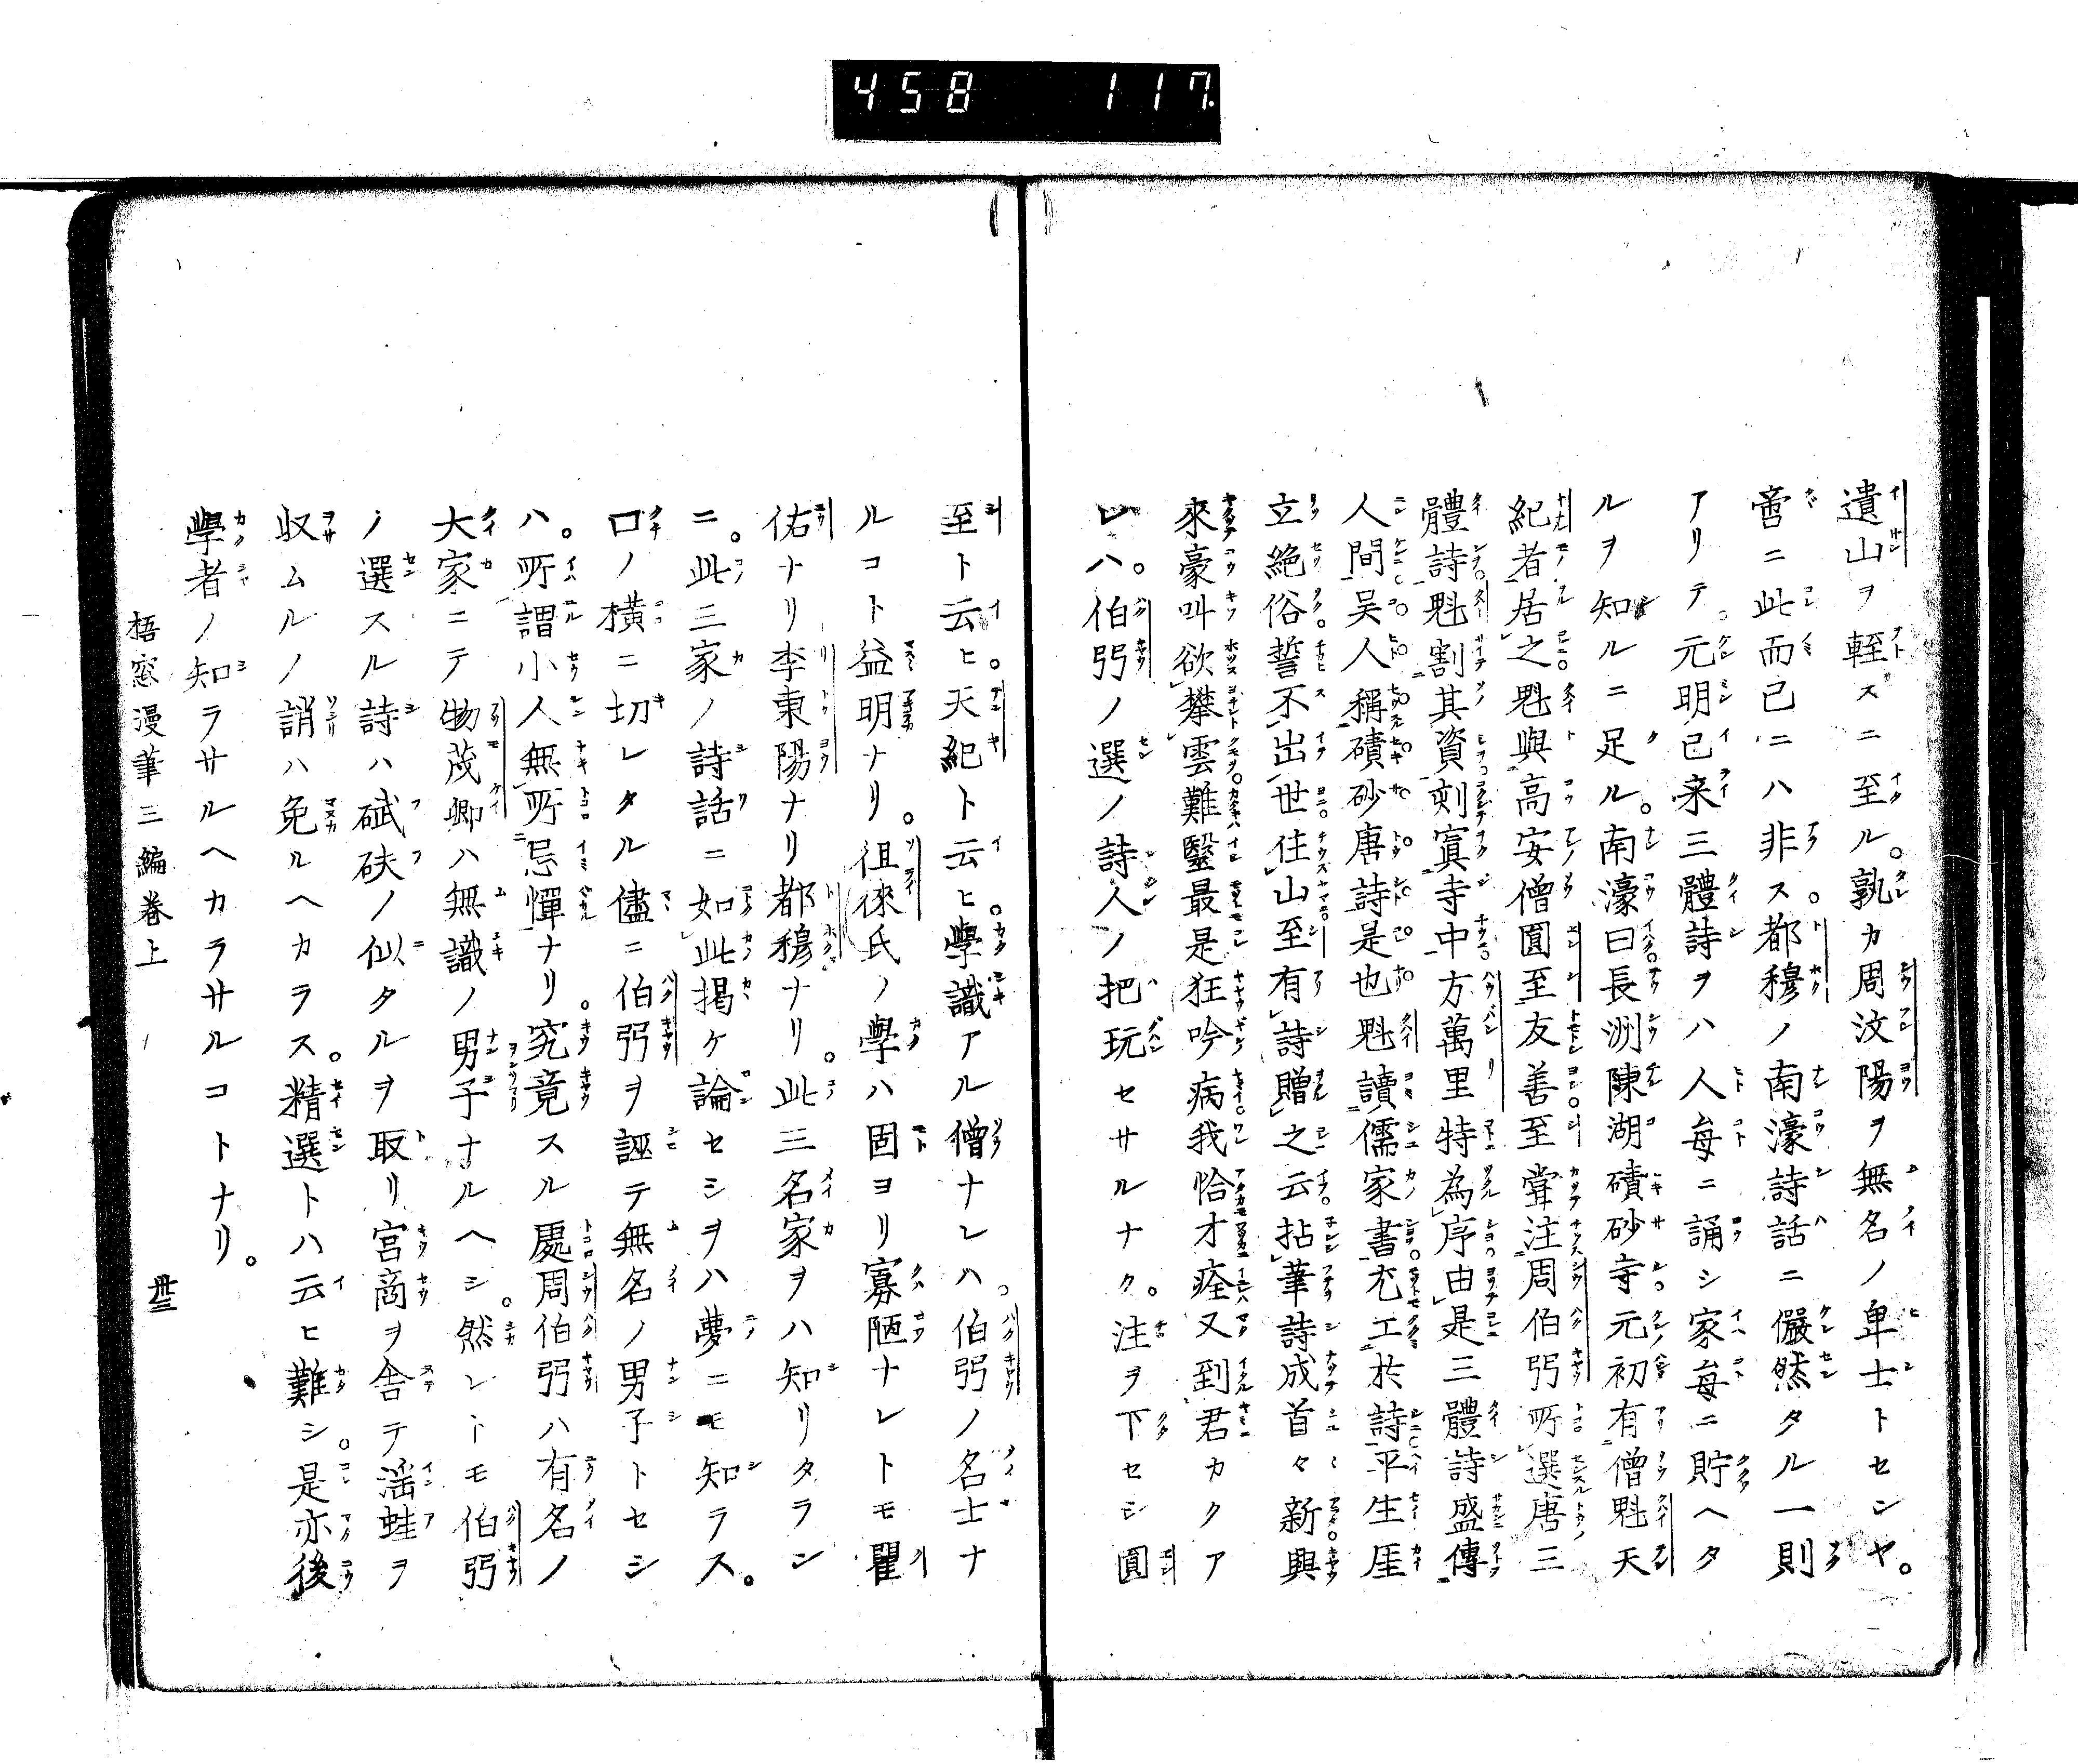 458 117
遺山ヲ輊スニ至ル。孰カ周汶陽ヲ無名ノ卑士トセンヤ。
啻ニ此而已ニハ非ス。都穆ノ南濠詩話ニ儼然タル一則
アリテ。元明已来三體詩ヲハ人毎ニ誦シ家毎ニ貯ヘタ
ルヲ知ルニ足ル。南濠曰長洲陳湖磧砂寺元初有僧魁天
紀者居之魁與高安僧圓至友善至甞注周伯弜所選唐三
體詩魁割其資刻寘寺中方萬里特為序由是三體詩盛傳
人間吴人稱磧砂唐詩是也魁讀儒家書尤工於詩平生厓
立絶俗誓不出世住山至有詩贈之云拈筆詩成首々新興
來豪叫欲攀雲難毉最是狂吟病我恰才痊又到君カクア
レハ。伯弜ノ選ノ詩人ノ把玩セサルナク。注ヲ下セシ圓
至ト云ヒ。天紀ト云ヒ。學識アル僧ナレハ。伯弜ノ名士ナ
ルコト益明ナリ。徂徠氏ノ學ハ固ヨリ寡陋ナレトモ瞿
佑ナリ李東陽ナリ都穆ナリ。此三名家ヲハ知リタラン
ニ。此三家ノ詩話ニ如此掲ケ論セシヲハ夢ニモ知ラス。
口ノ横ニ切レタル儘ニ伯弜ヲ誣テ無名ノ男子トセシ
ハ。所謂小人無所忌憚ナリ。究竟スル處周伯弜ハ有名ノ
大家ニテ物茂卿ハ無識ノ男子ナルヘシ。然レトモ伯弜
ノ選スル詩ハ碔砆ノ似タルヲ取リ宮商ヲ舎テ滛蛙ヲ
収ムルノ誚ハ免ルヘカラス。精選トハ云ヒ難シ。是亦後
學者ノ知ラサルヘカラサルコトナリ。
梧窓漫筆三編巻上 卅三